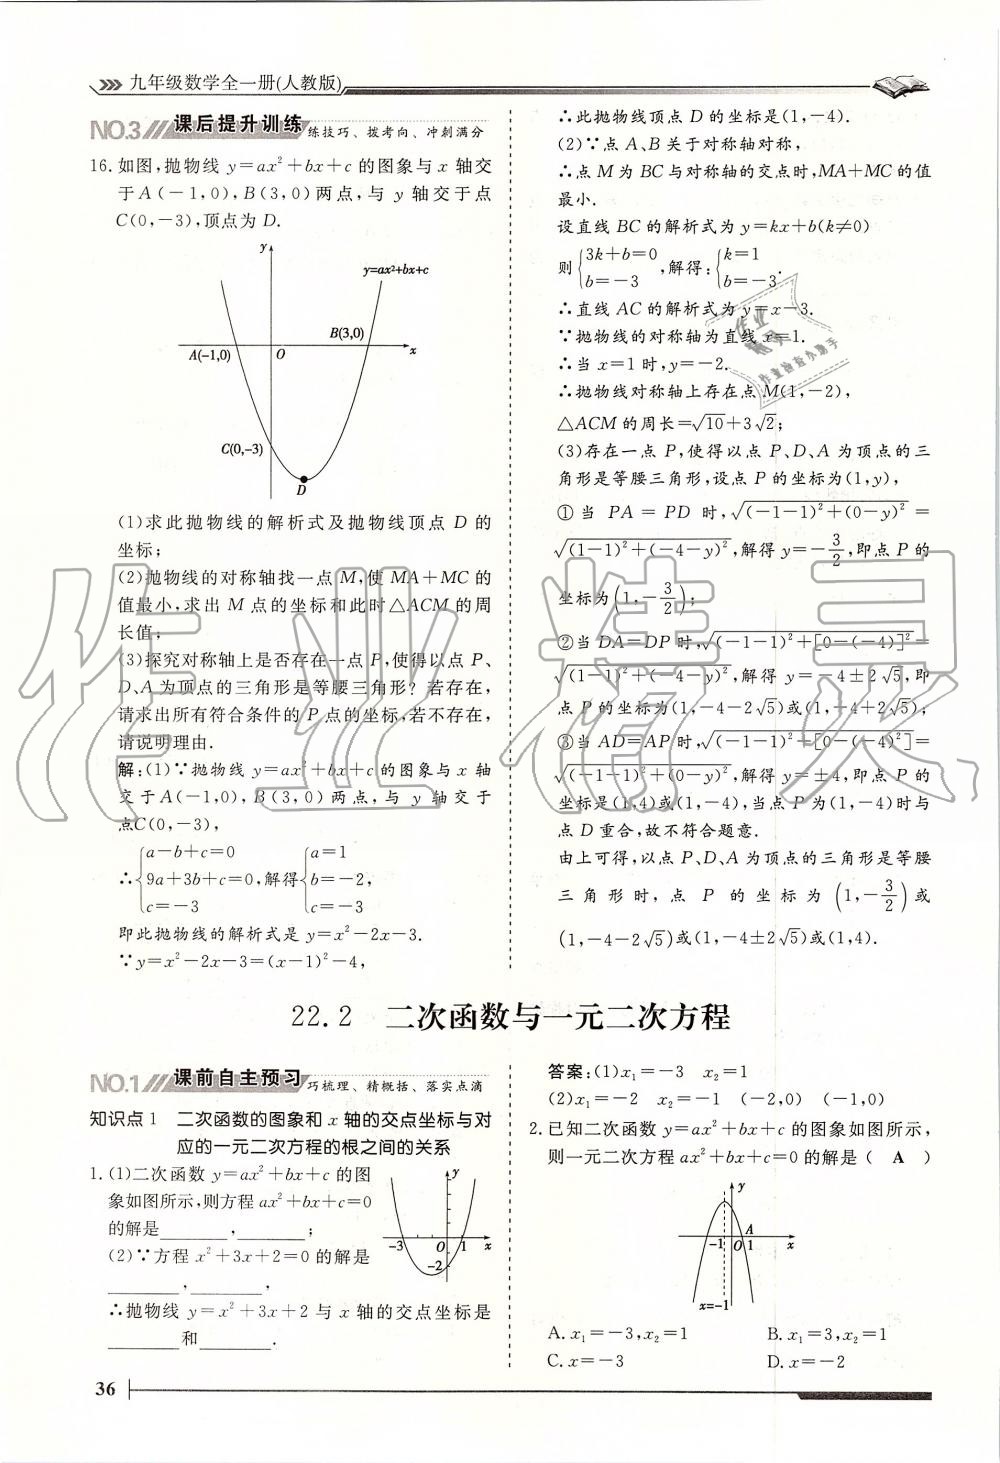 九年级数学全一册(人教版)
NO.3 课后提升训练 练技巧、拨考向、冲刺满分
16.如图,抛物线 y=ax²+bx+c 的图象与 x 轴交
于A(-1,0),B(3,0)两点,与 y 轴交于点
C(0,-3),顶点为 D.
y
y=ax²+bx+c
B(3,0)
A(-1,0) O x
C(0,-3)
D
(1)求此抛物线的解析式及抛物线顶点 D 的
坐标;
(2)抛物线的对称轴找一点 M,使 MA+MC 的
值最小,求出 M 点的坐标和此时△ACM 的周
长值;
(3)探究对称轴上是否存在一点 P,使得以点 P、
D、A 为顶点的三角形是等腰三角形?若存在,
请求出所有符合条件的 P 点的坐标,若不存在,
请说明理由.
解:(1)∵抛物线 y=ax²+bx+c 的图象与 x 轴
交于A(-1,0),B(3,0)两点,与 y 轴交于
点C(0,-3),
∴{a-b+c=0 9a+3b+c=0 c=-3,解得{a=1 b=-2 c=-3,
即此抛物线的解析式是 y=x²-2x-3.
∵y=x²-2x-3=(x-1)²-4,
∴此抛物线顶点 D 的坐标是(1,-4).
(2)∵点 A、B 关于对称轴对称,
∴点 M 为 BC 与对称轴的交点时,MA+MC 的值
最小.
设直线 BC 的解析式为 y=kx+b(k≠0)
则{3k+b=0 b=-3,解得:{k=1 b=-3.
∴直线 AC 的解析式为 y=x-3.
∵抛物线的对称轴为直线 x=1.
∴当 x=1 时,y=-2.
∴抛物线对称轴上存在点 M(1,-2),
△ACM 的周长=√10+3√2;
(3)存在一点 P,使得以点 P、D、A 为顶点的三
角形是等腰三角形,设点 P 的坐标为(1,y),
①当 PA=PD 时,√((-1-1)²+(0-y)²)=
√((1-1)²+(-4-y)²),解得 y=-3/2,即点 P 的
坐标为(1,-3/2);
②当 DA=DP 时,√((-1-1)²+[0-(-4)]²)=
√((1-1)²+(-4-y)²),解得 y=-4±2√5,即
点 P 的坐标为(1,-4-2√5)或(1,-4+2√5);
③当 AD=AP 时,√((-1-1)²+[0-(-4)²])=
√((-1-1)²+(0-y)²),解得 y=±4,即点 P 的
坐标是(1,4)或(1,-4),当点 P 为(1,-4)时与
点 D 重合,故不符合题意.
由上可得,以点 P、D、A 为顶点的三角形是等腰
三角形时,点 P 的坐标为(1,-3/2)或
(1,-4-2√5)或(1,-4±2√5)或(1,4).
22.2 二次函数与一元二次方程
NO.1 课前自主预习 巧梳理、精概括、落实点滴
知识点1 二次函数的图象和 x 轴的交点坐标与对
应的一元二次方程的根之间的关系
1.(1)二次函数 y=ax²+bx+c 的图
象如图所示,则方程 ax²+bx+c=0
的解是________,________;
(2)∵方程 x²+3x+2=0 的解是
________,________,
∴抛物线 y=x²+3x+2 与 x 轴的交点坐标是
________和________.
y
-3 O 1 x
-2
答案:(1)x₁=-3 x₂=1
(2)x₁=-2 x₂=-1 (-2,0) (-1,0)
2.已知二次函数 y=ax²+bx+c 的图象如图所示,
则一元二次方程 ax²+bx+c=0 的解是( A )
y
A
-1 O 1 x
x=-1
A.x₁=-3,x₂=1 B.x₁=3,x₂=1
C.x=-3 D.x=-2
36
作业精灵
作业精灵
作业检查小助手